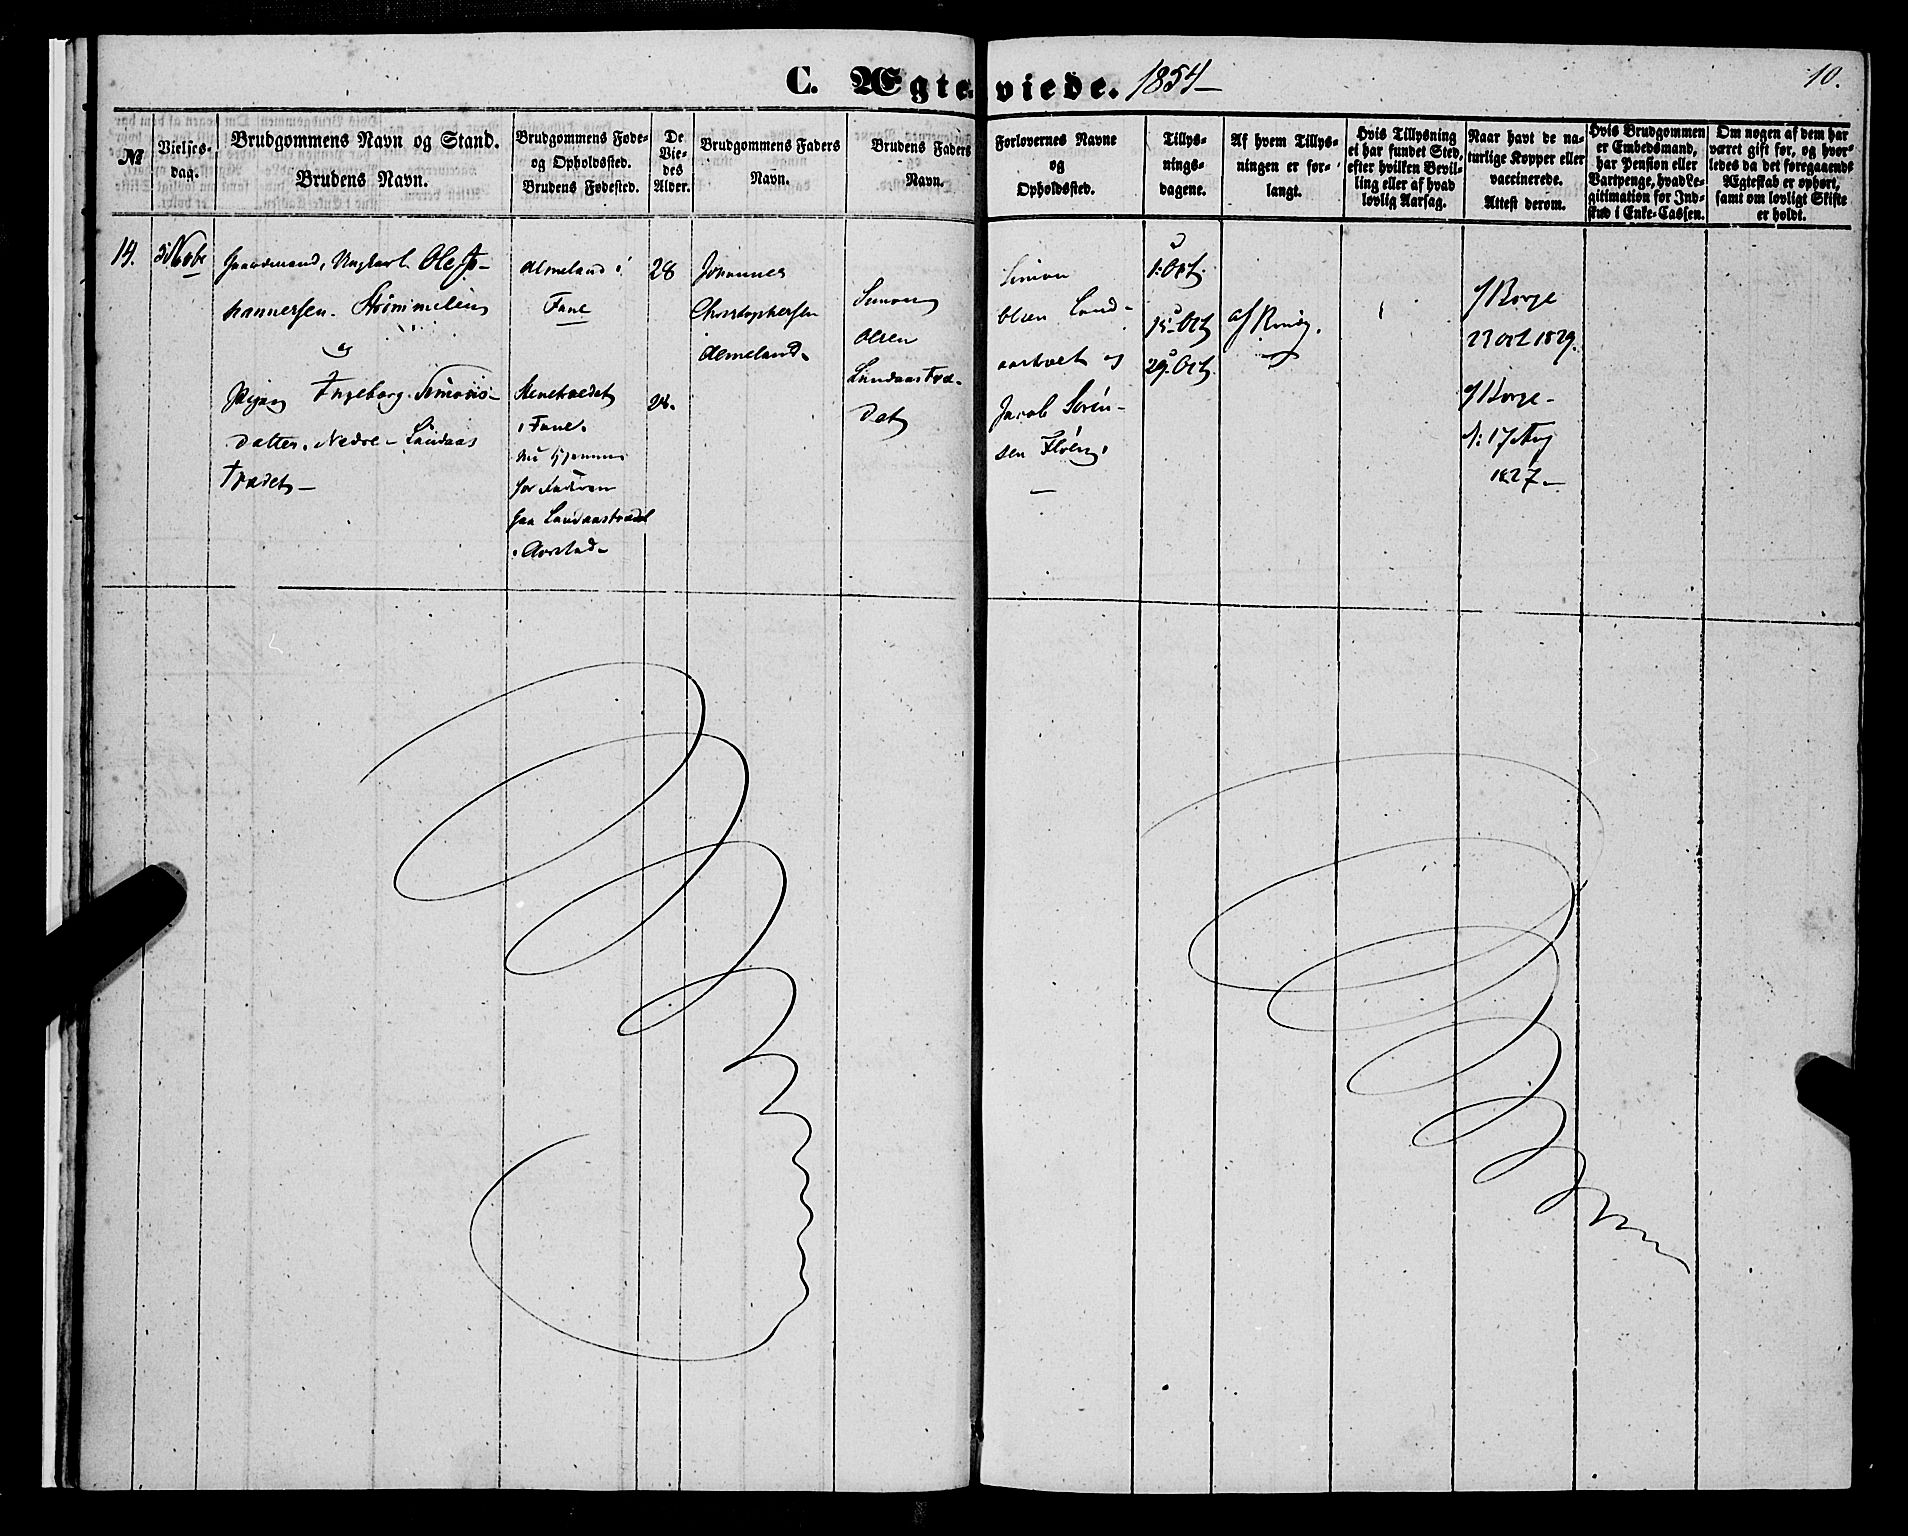 C. Ægteviede. 1854
10.
№
Vielses-
dag.
Brudgommens Navn og Stand.
Brudens Navn.
Brudgommens Føde-
og Opholdssted.
Brudens Fødested.
De
Vie-
des
Alder.
Brudgommens Faders
Navn.
Brudens Faders
Navn.
Forlovernes Navne
og
Opholdssted.
Tillys-
nings-
dagene.
Af hvem Tillys-
ningen er for-
langt.
Hvis Tillysning
ei har fundet Sted,
efter hvilken Bevil-
ling eller af hvad
lovlig Aarsag.
Naar havt de na-
turlige Kopper eller
vaccinerede.
Attest derom.
Hvis Brudgommen
er Embedsmand,
har Pension eller
Vartpenge, hvad Le-
gitimation for Ind-
skud i Enke-Cassen.
Om nogen af dem har
været gift før, og hvor-
ledes da det foregaaende
Ægteskab er ophørt,
samt om lovligt Skifte
er holdt.
14.
Gaardmand, Ungkarl Ole Jo-
hannersen. Strømmelien
og
Pigen Ingeborg Simons-
datter. Nedre-Landaas
Trædet-
Almeland i
Fane
Stenetrædet
i Fane.
nu hjemme
for Faderen
paa Landaastrædet
i Aarstad-
28
28.
Johannes
Christophersen
Almeland-
Simon
Olsen
Landaastræ-
det
Simon
Olsen Land-
aastræet og
Jacob Sørén-
sen Fløen,
1: Oct.
15 Oct
29. Oct.
af Brudg.
f Borge
27 oct 1829.
f Borge-
d: 17 Aug
1827-